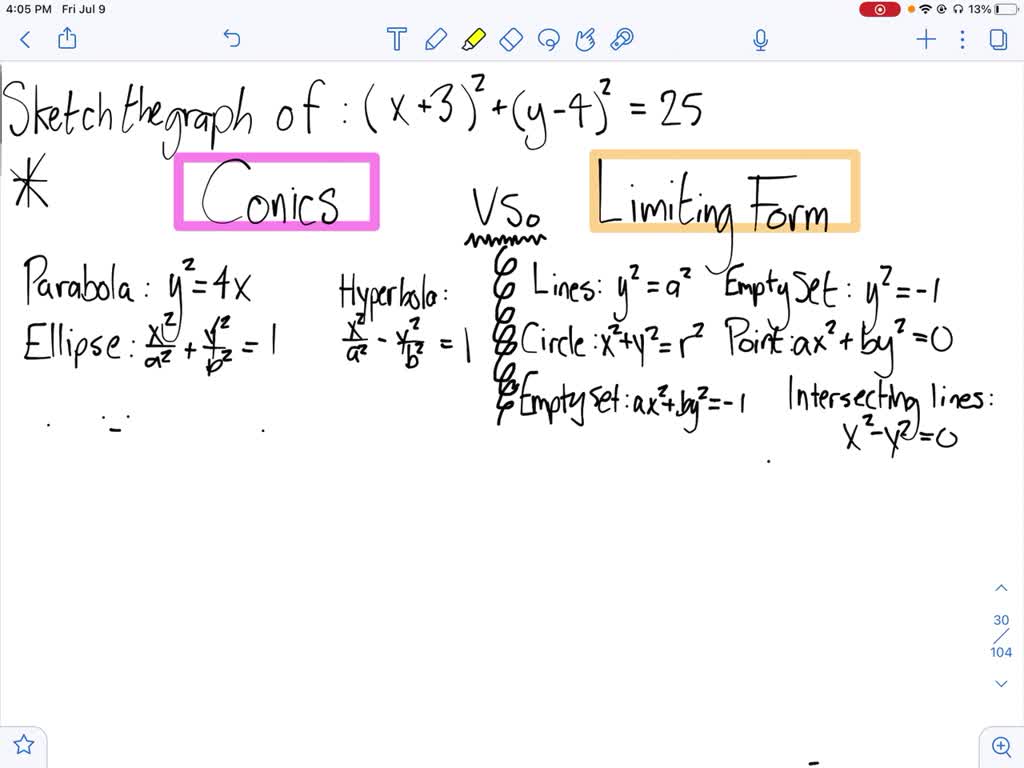 4:05 PM Fri Jul 9 13%
Sketch the graph of : (x+3)² + (y-4)² = 25
* Conics VS. Limiting Form
Parabola: y² = 4x
Hyperbola:
x²/a² - y²/b² = 1
Ellipse: x²/a² + y²/b² = 1
Lines: y² = a² Empty Set: y² = -1
Circle: x²+y² = r² Point: ax² + by² = 0
Empty Set: ax²+by² = -1 Intersecting lines:
x² - y² = 0
30
/
104